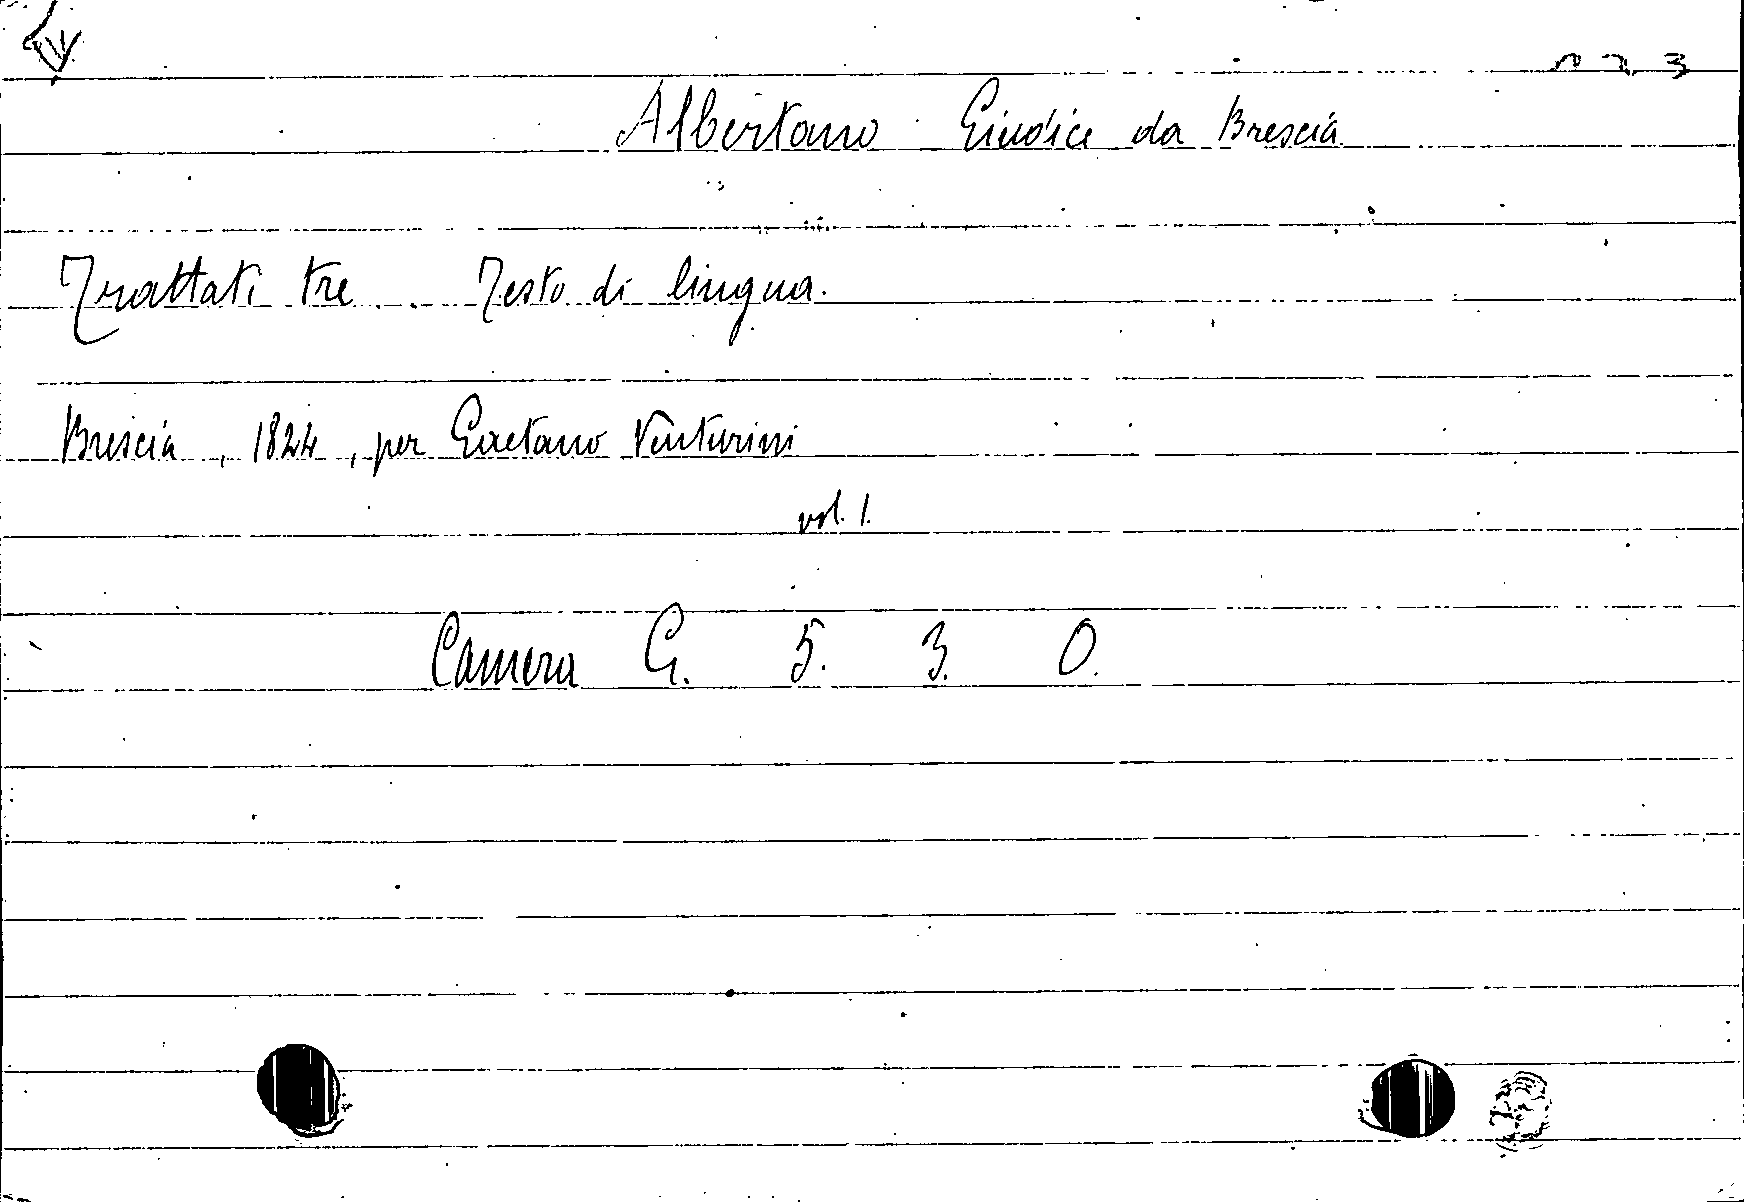 Albertano Giudice da Brescia
Trattati tre. Testo di lingua.
Brescia, 1824, per Gaetano Venturini
vol. 1.
Camera G. 5. 3. O.